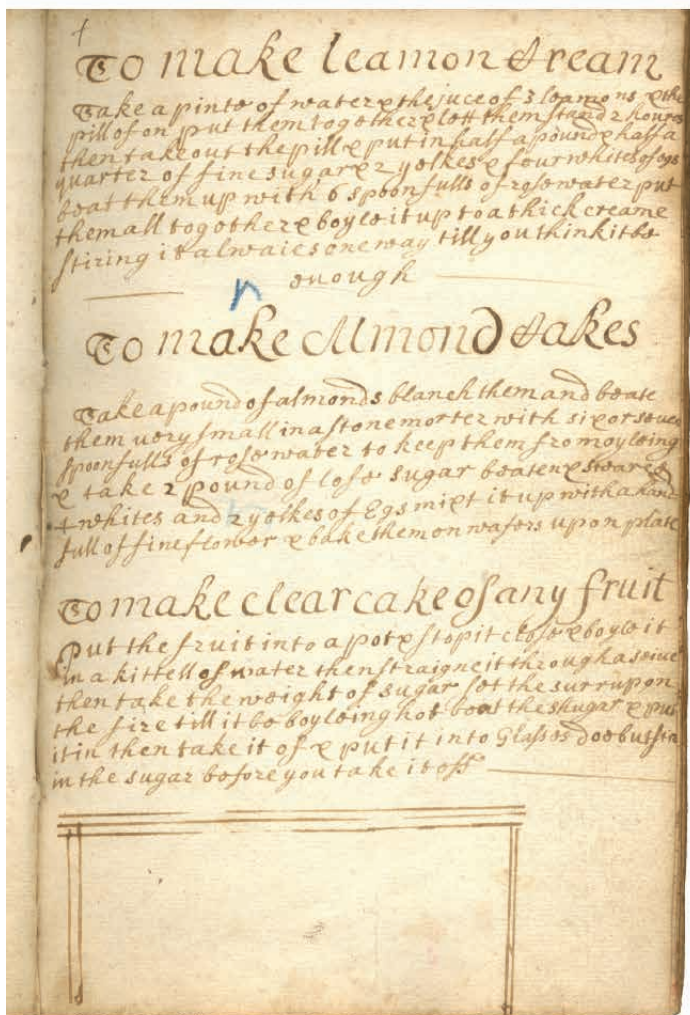 To make Leamon Cream
Take a pinte of water & the juce of 3 leamons & the
pill of on put them together & lett them stand 2 houres
then take out the pill & put in half a pound & half a
quarter of fine sugar & 2 yolkes & four whites of egs
beat them up with 6 spoonfulls of rose water put
them all together & boyle it up to a thick creame
stiring it alwaies one way till you think it be
enough
To make Almond Cakes
Take a pound of almonds blanch them and beate
them very small in a stone morter with six or seven
spoonfulls of rose water to keep them from oyleing
& take 2 pound of lofe sugar beaten & searced
4 whites and 2 yolkes of Egs mixt it up with a hand
full of fine flower & bake them on wafers upon plate
To make clear cake of any fruit
Put the fruit into a pot & stop it close & boyle it
in a kittell of water then straigne it through a seive
then take the weight of sugar set the surrup on
the fire till it be boyleing hot beat the shugar & put
it in then take it of & put it into Glasses doe but
in the sugar before you take it off